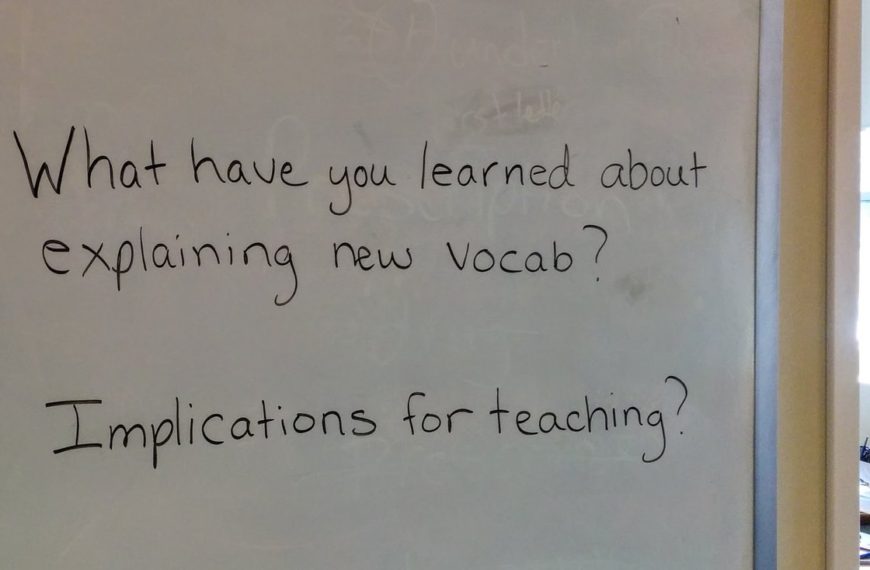 What have you learned about
explaining new vocab?
Implications for teaching?